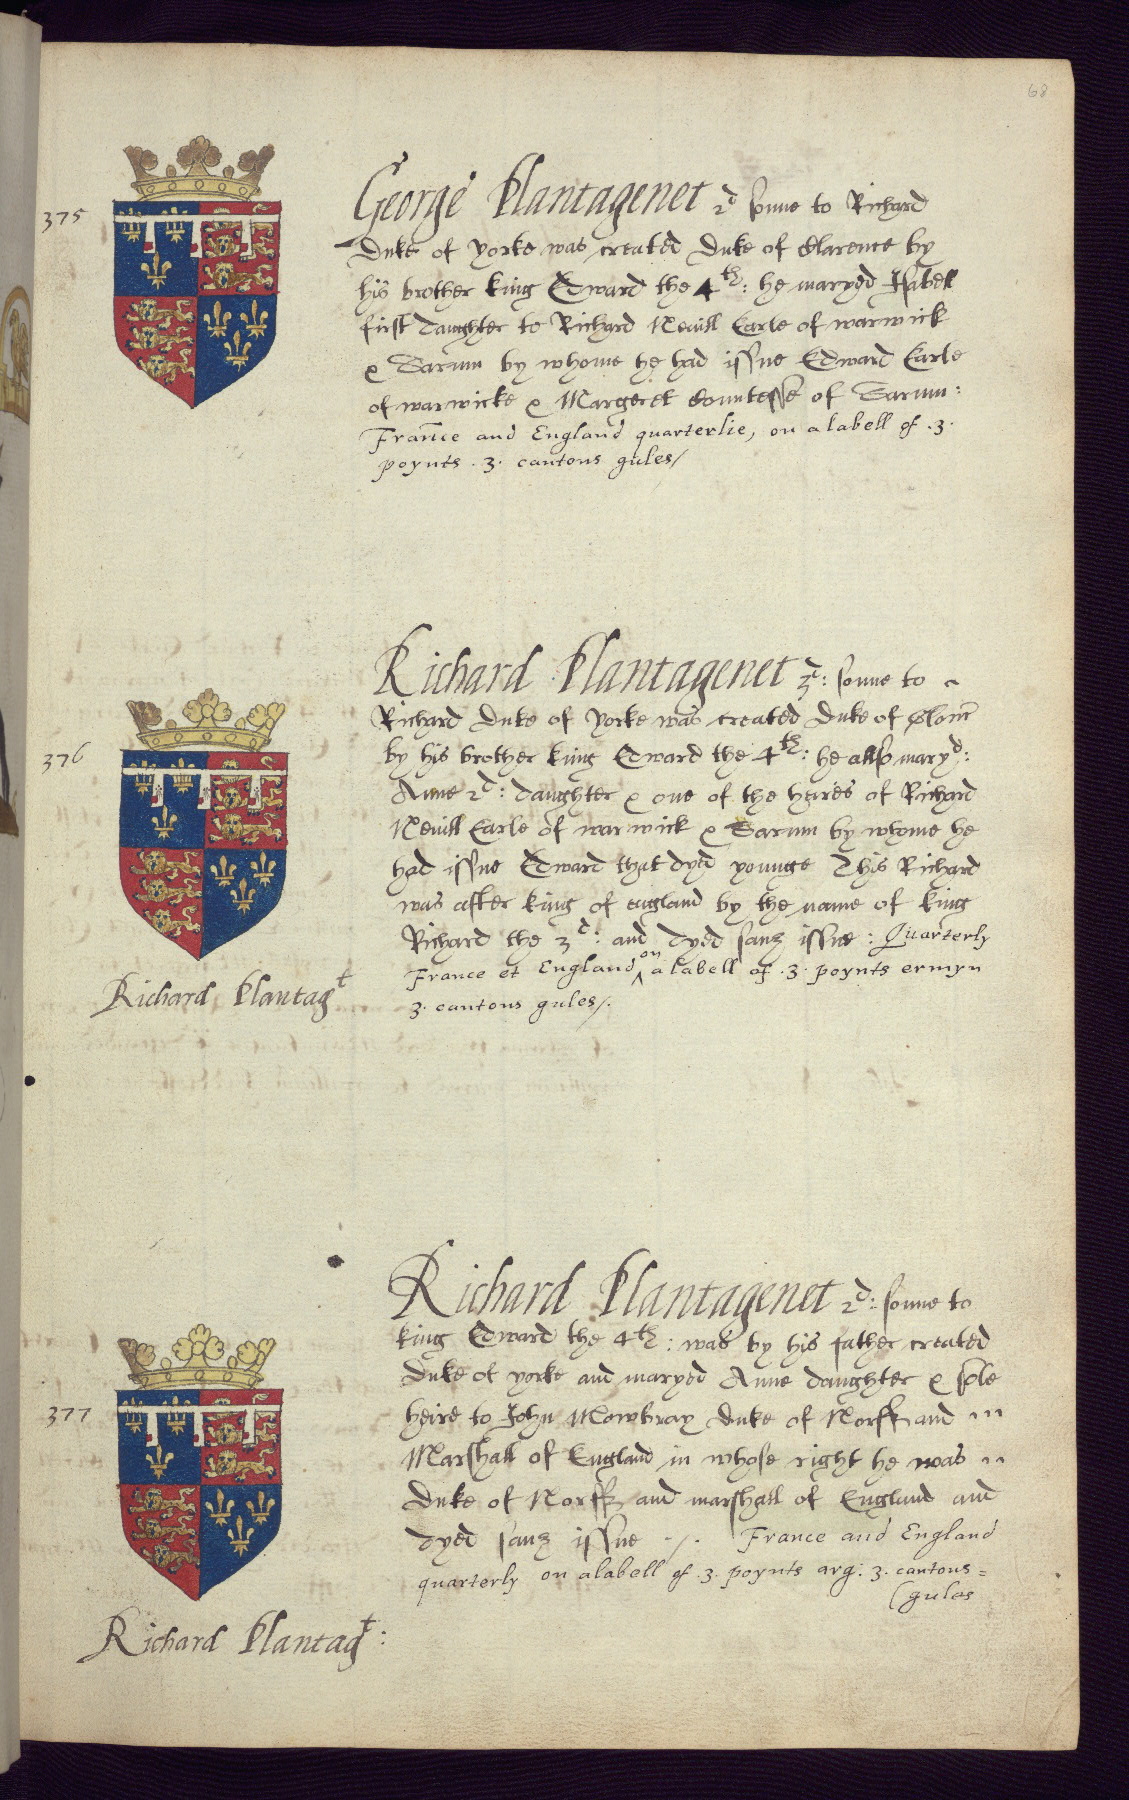 68
375
George Plantagenet 2d sonne to Richard
Duke of Yorke was created Duke of Clarence by
his brother king Edward the 4th: he maryed Isabell
first daughter to Richard Nevill Earle of warwick
& Sarum by whome he had issue Edward Earle
of warwicke & Margeret Countesse of Sarum:
France and England quarterlie, on a labell of .3.
poynts .3. cantons gules/
376
Richard Plantagenet 3d: sonne to ~
Richard Duke of Yorke was created Duke of Glouc
by his brother king Edward the 4th: he allso maryd:
Anne 2d: daughter & one of the heires of Richard
Nevill Earle of warwick & Sarum by whome he
had issue Edward that dyed younge This Richard
was after king of england by the name of king
Richard the 3d: and dyed sanz issue: Quarterly
France et England on a labell of .3. poynts ermyn
3. cantons gules/.
Richard Plantagt
377
Richard Plantagenet 2d: sonne to
king Edward the 4th: was by his father created
Duke of yorke and maryed Anne daughter & sole
heire to John Mowbray Duke of Norff and
Marshall of England in whose right he was
Duke of Norff and marshall of England and
dyed sanz issue ./. France and England
quarterly on a labell of .3. poynts arg: 3. cantons=
(gules
Richard Plantagt: